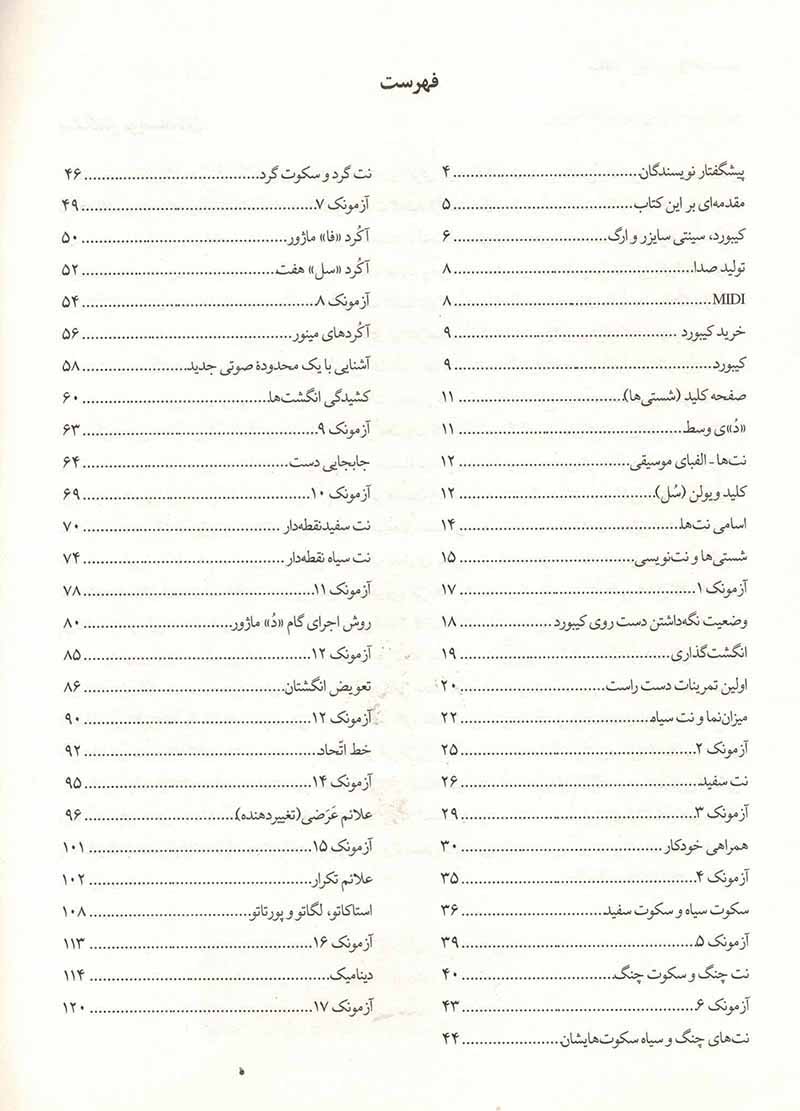 فهرست
پیشگفتار نویسندگان........................................ ۴
مقدمه‌ای بر این کتاب........................................ ۵
کیبورد، سینتی سایزر و ارگ........................................ ۶
تولید صدا........................................ ۸
MIDI........................................ ۸
خرید کیبورد ........................................ ۹
کیبورد........................................ ۹
صفحه کلید (شستی‌ها)........................................ ۱۱
«دُ»ی وسط........................................ ۱۱
نت‌ها - الفبای موسیقی........................................ ۱۲
کلید ویولن (سُل)........................................ ۱۲
اسامی نت‌ها........................................ ۱۴
شستی‌ها و نت‌نویسی........................................ ۱۵
آزمونک ۱........................................ ۱۷
وضعیت نگه‌داشتن دست روی کیبورد........................................ ۱۸
انگشت‌گذاری........................................ ۱۹
اولین تمرینات دست راست........................................ ۲۰
میزان‌نما و نت سیاه........................................ ۲۲
آزمونک ۲........................................ ۲۵
نت سفید........................................ ۲۶
آزمونک ۳........................................ ۲۹
همراهی خودکار ........................................ ۳۰
آزمونک ۴........................................ ۳۵
سکوت سیاه و سکوت سفید........................................ ۳۶
آزمونک ۵........................................ ۳۹
نت چنگ و سکوت چنگ........................................ ۴۰
آزمونک ۶........................................ ۴۳
نت‌های چنگ و سیاه سکوت‌هایشان........................................ ۴۴
نت گرد و سکوت گرد........................................ ۴۶
آزمونک ۷........................................ ۴۹
آکُرد «فا» ماژور........................................ ۵۰
آکُرد «سل» هفت........................................ ۵۲
آزمونک ۸........................................ ۵۴
آکُردهای مینور........................................ ۵۶
آشنایی با یک محدودهٔ صوتی جدید........................................ ۵۸
کشیدگی انگشت‌ها........................................ ۶۰
آزمونک ۹........................................ ۶۳
جابجایی دست........................................ ۶۴
آزمونک ۱۰........................................ ۶۹
نت سفید نقطه‌دار ........................................ ۷۰
نت سیاه نقطه‌دار ........................................ ۷۴
آزمونک ۱۱........................................ ۷۸
روش اجرای گام «دُ» ماژور........................................ ۸۰
آزمونک ۱۲........................................ ۸۵
تعویض انگشتان........................................ ۸۶
آزمونک ۱۲........................................ ۹۰
خط اتّحاد........................................ ۹۲
آزمونک ۱۴........................................ ۹۵
علائم عَرَضی(تغییردهنده)........................................ ۹۶
آزمونک ۱۵........................................ ۱۰۱
علائم تکرار........................................ ۱۰۲
استاکاتو، لگاتو و پورتاتو........................................ ۱۰۸
آزمونک ۱۶........................................ ۱۱۳
دینامیک........................................ ۱۱۴
آزمونک ۱۷........................................ ۱۲۰